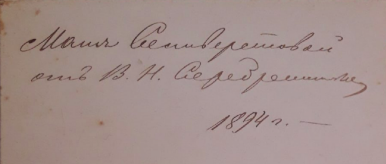 Мани Селиверстовой
отъ В. Н. Серебренникова
1894 г. —